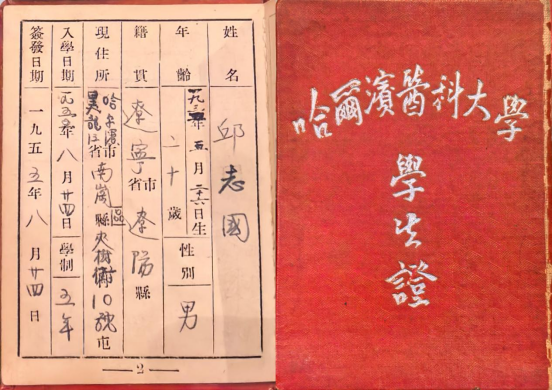 姓名 邱志國
年齡 一九三五年五月二十六日生 二十歲 性別 男
籍貫 遼寧省市 遼陽縣
現住所 哈尔濱市 黑龍江省 南崗縣區 大樹街10號屯
入學日期 一九五五年八月廿四日 學制 五年
簽發日期 一九五五年八月廿四日
2
哈爾濱醫科大學
學生證